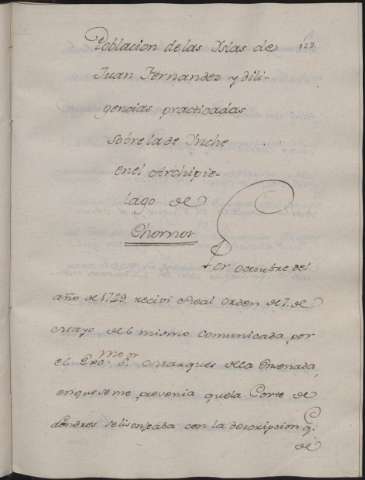 Poblacion de las Yslas de
Juan Fernandez y dili-
gencias practicadas
sobre la de Ynche
en el Archipie-
lago de
Chonos
Por Diciembre del
año de 1749 recivi Real Orden de 7. de
mayo del mismo comunicada por
el Exmo. Sr. Marques de la Ensenada,
en que se me prevenia que la Corte de
Londres se lisonjeaba con la descripcion q.
de